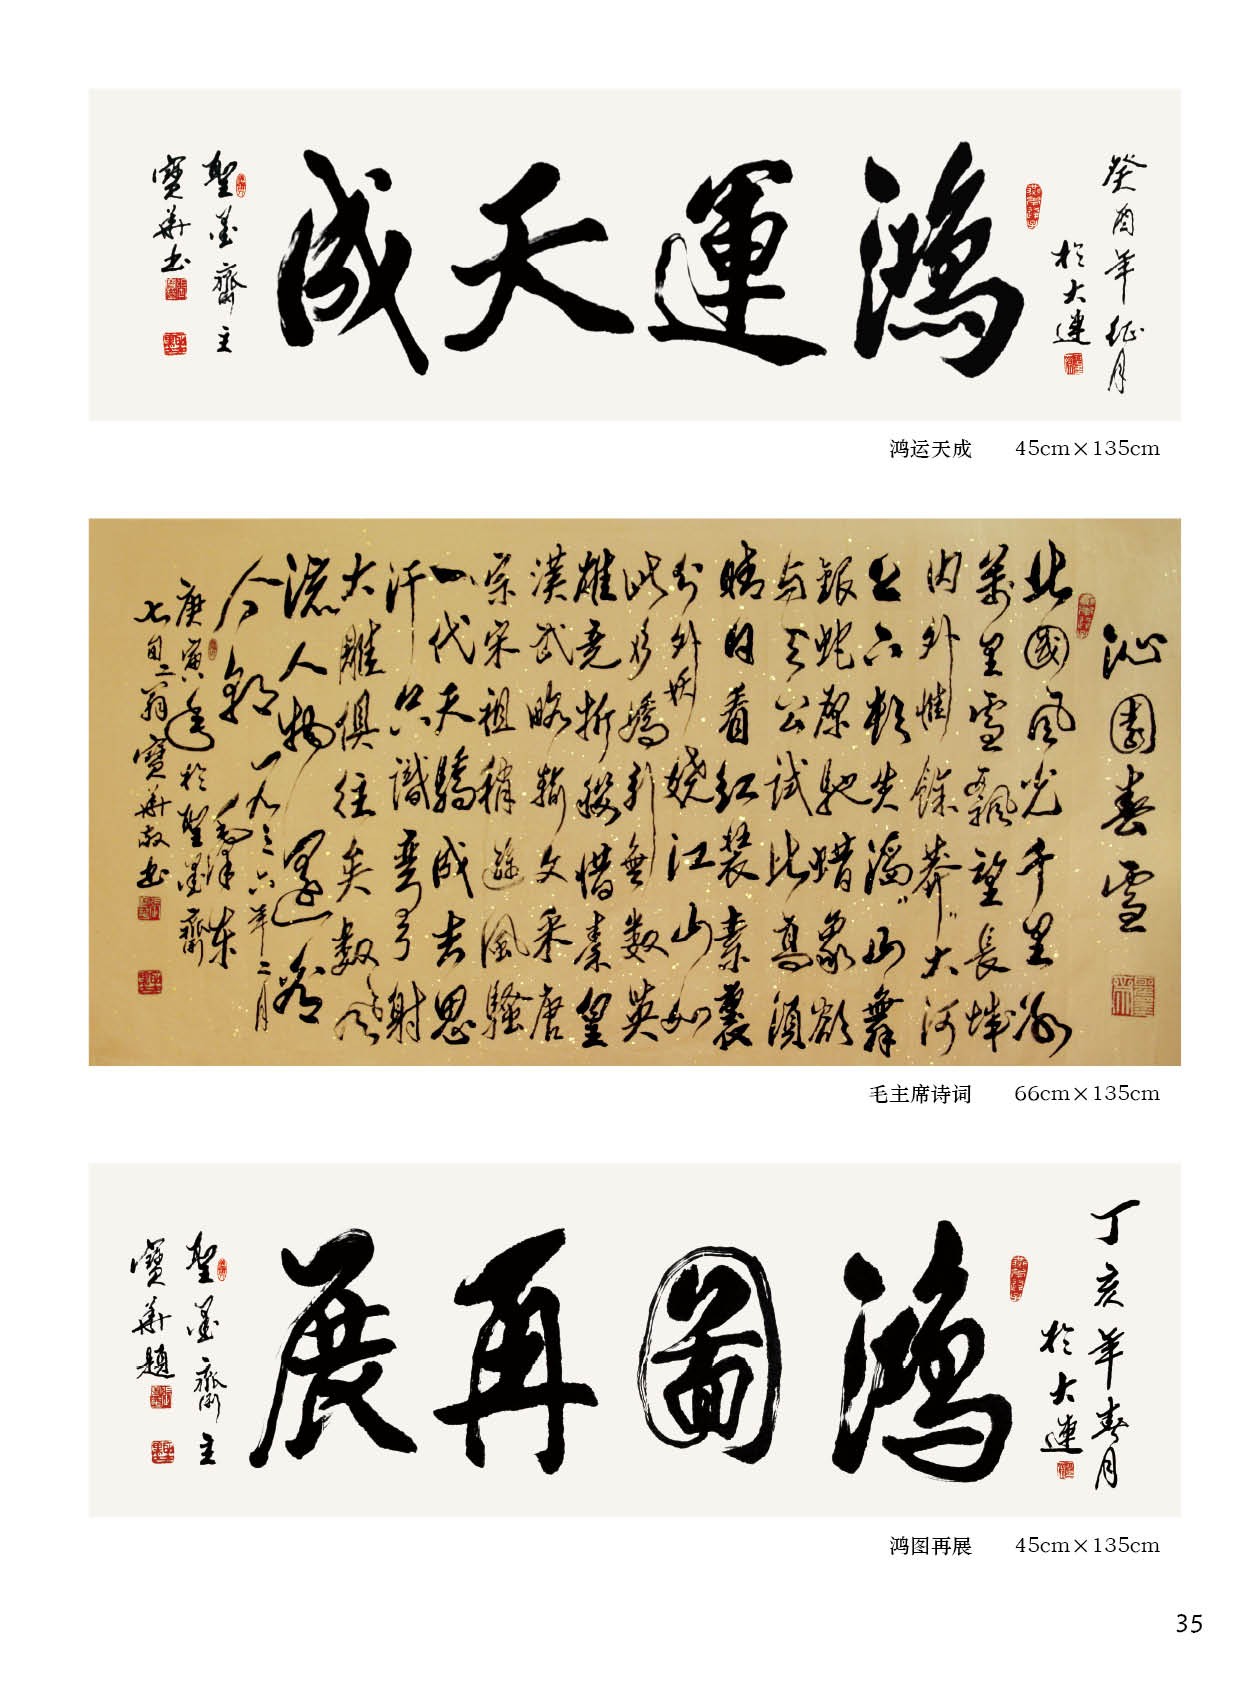 癸酉年征月
於大連
鴻運天成
聖墨齋主
寶華书
鸿运天成 45cm×135cm
沁園春雪
北國風光千里冰
萬里雪飄望長城
内外惟餘莽"大河
上下頓失滔"山舞
銀蛇原馳蜡象欲
与天公试比高須
晴日看红装素裹
分外妖娆江山如
此多嬌引無数英
雄竞折腰惜秦皇
漢武略輸文采唐
宗宋祖稍遜風騷
一代天驕成吉思
汗只識彎弓射
大雕俱往矣数風
流人物還看
今朝一九三六年二月
毛泽东
庚寅年於聖墨齋
七旬二翁寶華敬书
毛主席诗词 66cm×135cm
丁亥年春月
於大連
鴻圖再展
聖墨齋主
寶華題
鸿图再展 45cm×135cm
35